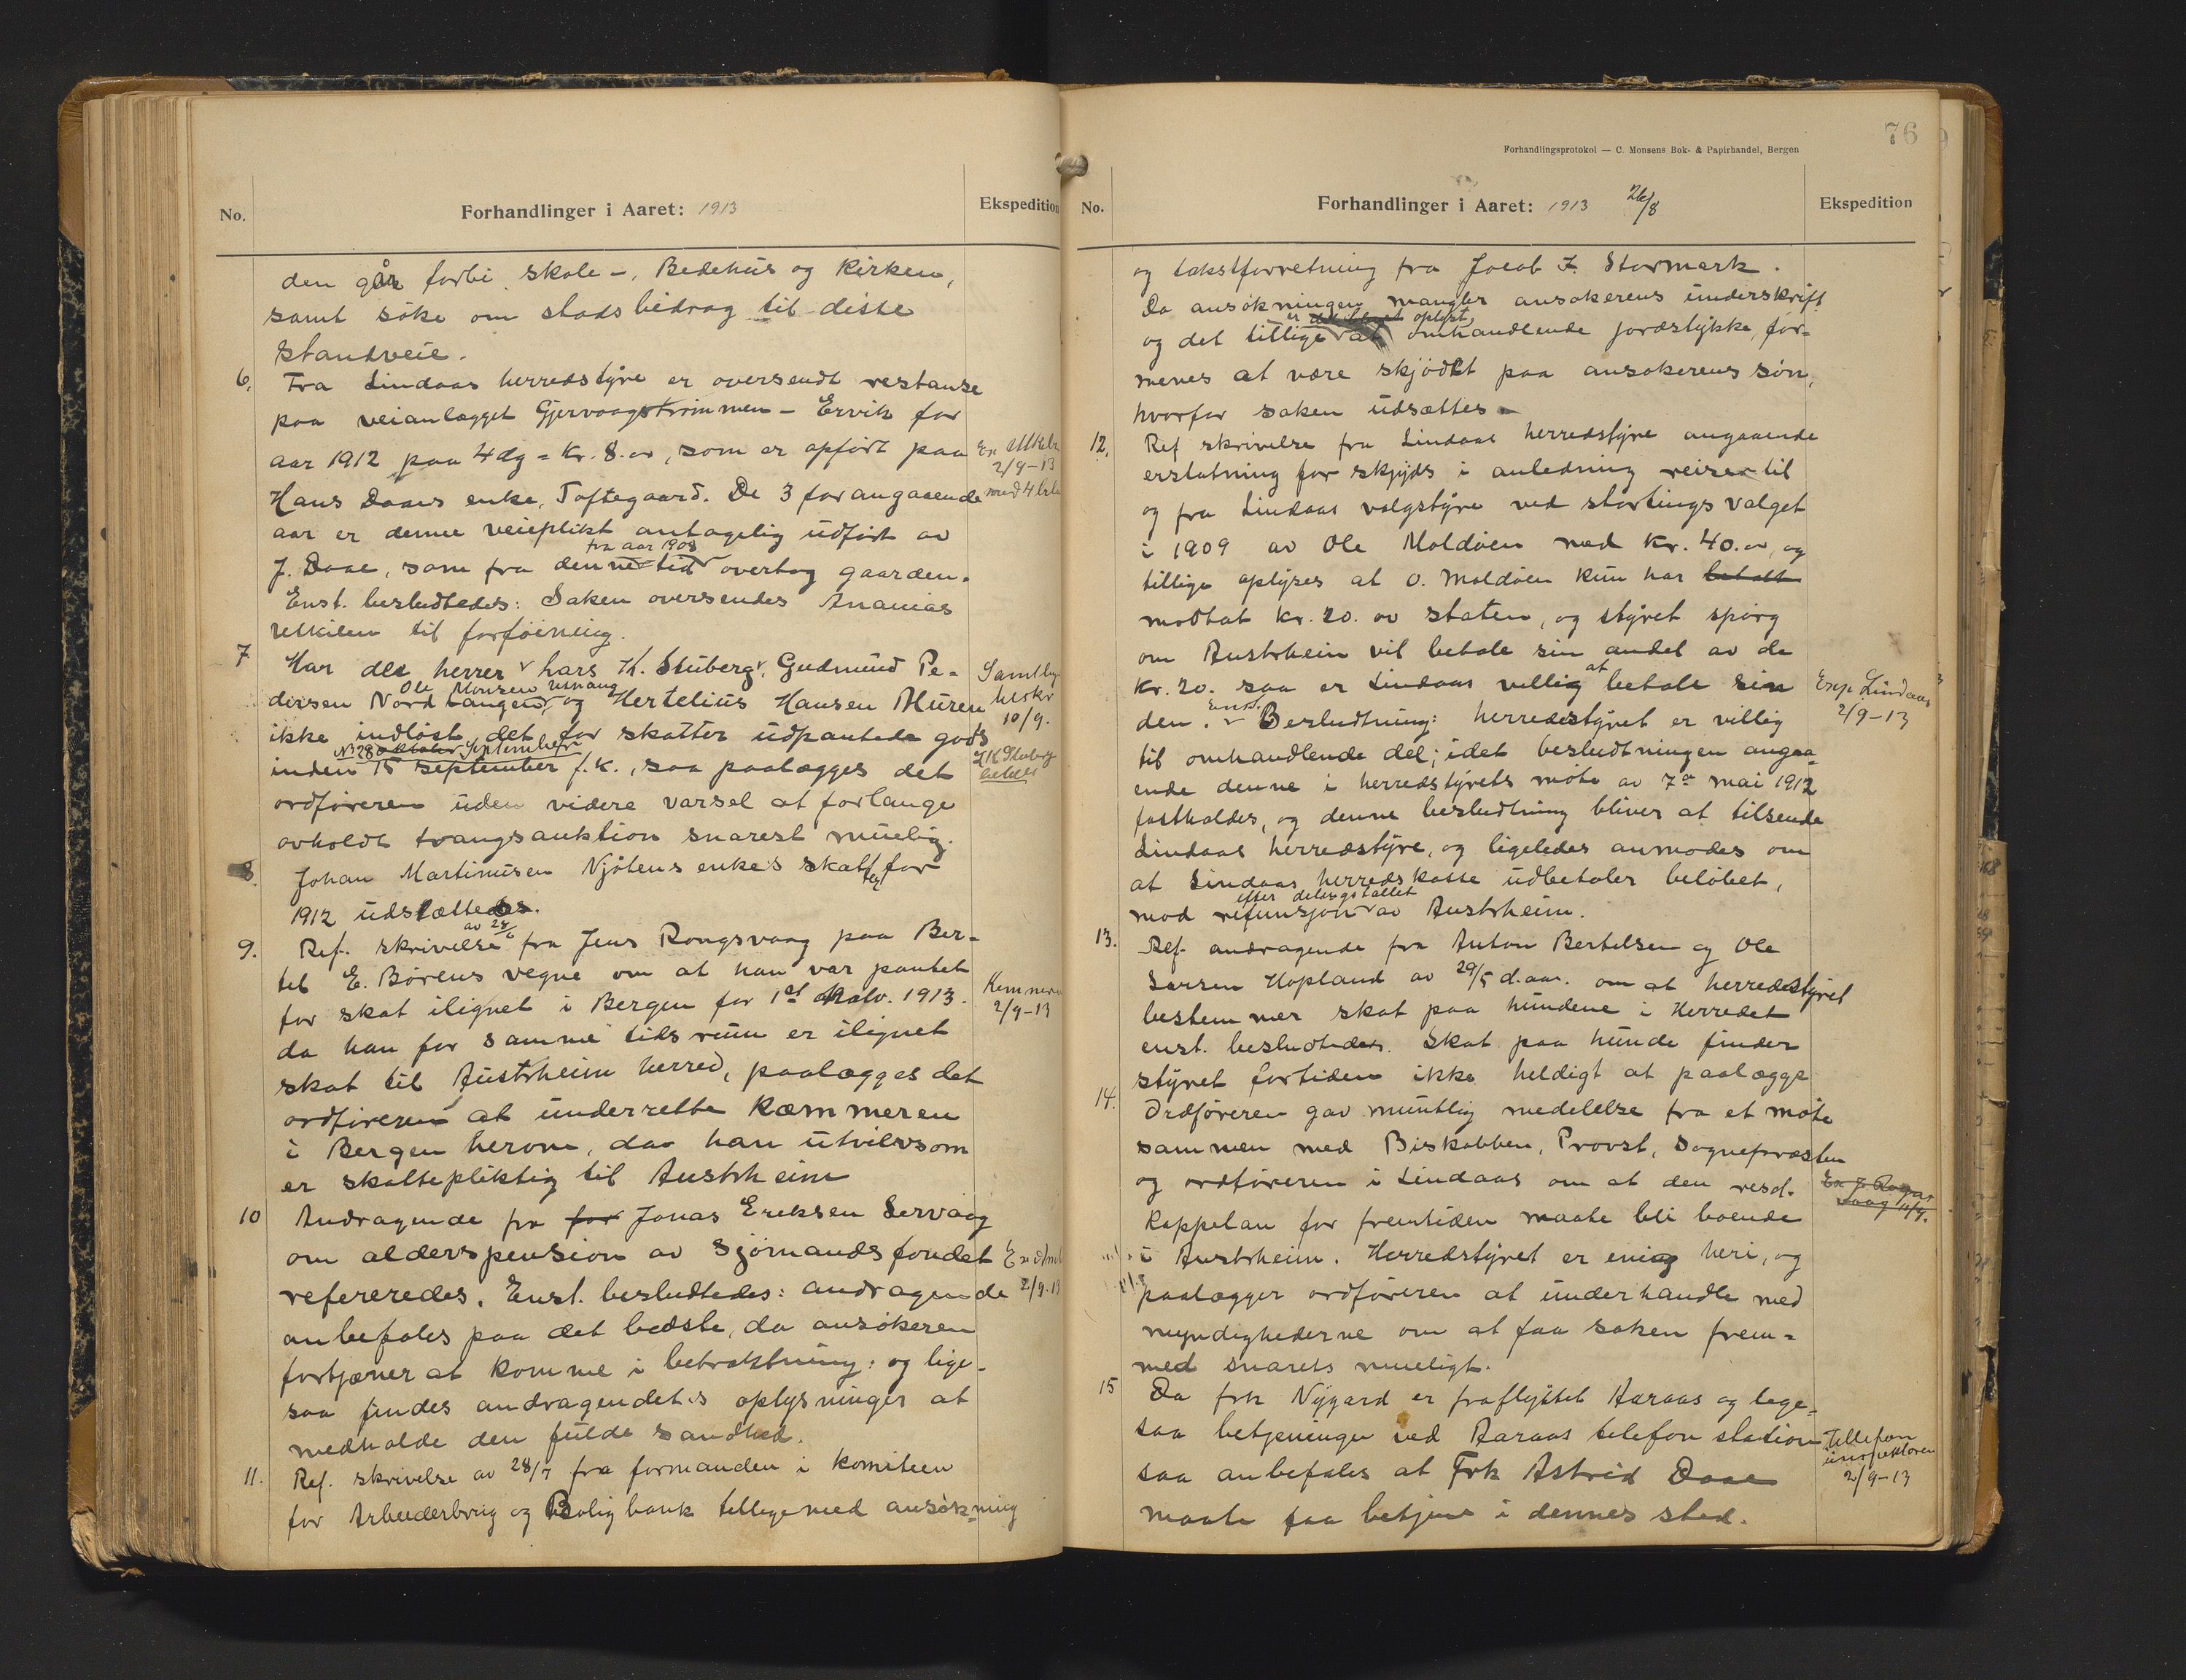 No.
Forhandlinger i Aaret: 1913
Ekspedition
den går forbi skole-, Bedehus og Kirken,
samt söke om stads bidrag til diste
standveie.
6. Fra Lindaas herredstyre er oversendt restanse
paa veianlægget Gjervaagstrømmen - Ervik for
aar 1912 paa 4 dg = kr. 8.oo, som er opfört paa
Hans Daaes enke, Toftegaard. De 3 forangaaende
aar er denne veieplikt antagelig udfört av
fra aar 1908
J. Daae, som fra denne tid overtog gaarden.
Enst. besludtedes: Saken oversendes Ananias
Utkilen til forföining.
2/9-13
med 4 bila
7 Har de herrer hars K. Stuberg, Gudmund Pe-
Ole Monsen Usnang
dersen Nord Langöen, og Hertelius Hansen Muren
ikke indlöst det for skatter udpantede gods
N 28 oktober September
inden 15 september f.k., saa paalægges det
ordföreren uden videre varsel at forlange
avholdt tvangsauktion snarest muelig.
Samtlige
beskr
10/9.
8. Johan Martinusen Njötens enkes skatter for
1912 udslættedes.
av 28/6
9. Ref. skrivelse fra Jens Rongsvaag paa Ber-
tel E. Börens vegne om at han var pantet
for skat ilignet i Bergen for 1st Halv. 1913.
da han for samme tidsrum er ilignet
skat til Austrheim herred, paalægges det
ordföreren at underrette Kæmmeren
i Bergen herom, da han utvilvsom
er skattepliktig til Austrheim
Kemneren
2/9-13
10 Andragende fra for Jonas Eriksen Servaag
om alderspension av Sjömandsfondet
refereredes. Enst. besludtedes: andragende
anbefales paa det bedste, da ansökeren
fortjæner at komme i betraktning: og lige-
saa findes andragendets oplysninger at
medholde den fulde sandhed.
2/9-13
11. Ref. skrivelse av 28/7 fra formanden i komiteen
for Arbeiderbrug og Bolig bank tillegemed ansök=ning
76
Forhandlingsprotokol — C. Monsens Bok- & Papirhandel, Bergen
No.
Forhandlinger i Aaret: 1913 26/8
Ekspedition
og takstforretning fra Jacob J. Stormark.
Da ansökningen mangler ansökerens underskrift
er oplyst
og det tillige at omhandlende jordstykke, for-
menes at være skjödet paa ansökerens sön,
hvorfor saken udsættes
12. Ref skrivelse fra Lindaas herredstyre angaaende
erstatning for skjyds i anledning reiser til
og fra Lindaas valgstyre ved stortings valget
i 1909 av Ole Moldöen med kr. 40.oo, og
tillige oplyses at O. Moldöen kun har betalt
modtat kr. 20. av staten, og styret spörg
om Austrheim vil betale sin andel av de
at
kr. 20. saa er Lindaas villig betale sin
Enst.
den. Besludtning: herredstyret er villig
til omhandlende del; idet besludtningen angaa-
ende denne i herredstyrets möte av 7de mai 1912
fastholdes, og denne besludtning bliver at tilsende
Lindaas herredstyre, og ligeledes anmodes om
at Lindaas herredskasse udbetaler belöbet,
efter delingstallet
mod refunsjon av Austrheim.
Exp Lindaas
2/9-13
13. Ref andragende fra Anton Bertelsen og Ole
Larsen Hopland av 29/5 d.aar. om at herredstyret
bestemmer skat paa hundene i Herredet
enst. besludtedes. Skat paa hunde finder
styret fortiden ikke heldigt at paalægge
14. Ordföreren gav muntlig medelelse fra et möte
sammen med Biskobben, Provst, Sognepræsten
og ordföreren i Lindaas om at den resd.
Kappelan for fremtiden maate bli boende
i Austrheim. Herredstyret er enig heri, og
paalægger ordföreren at underhandle med
myndighederne om at faa saken frem=
med snarets mueligt.
15 Da frk Nygard er fraflyttet Aaraas og lege=
saa betjeninger ved Aaraas telefon station
saa anbefales at Frk Astrid Daae
maate faa betjene i dennes sted.
Tellefon
inspektören
2/9-13